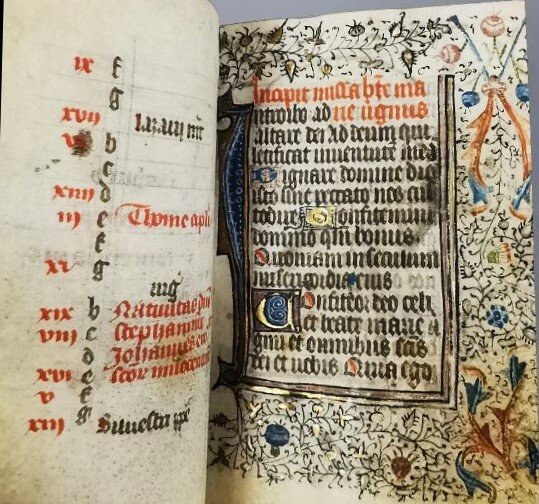 ix f
g
xvii
b
c
xiiii d
iii e Thome apli
f
xi g
vig
xix b Natiuitas dni
viii c Stephani
d Johannis
xvi e scor innocenciu
v f
xiii g Siluestri ppe
Incipit missa bte ma
Introibo ad rie uginis
altare dei Ad deum qui
letificat iuuentute mea
Dignare domine die
isto sine peccato nos cus
todire Confitemini
domino qm bonus
Quoniam in seculum
misericordia eius
Confiteor deo celi
et beate marie
gini et omnibus scis
dei et uobis Quia ego